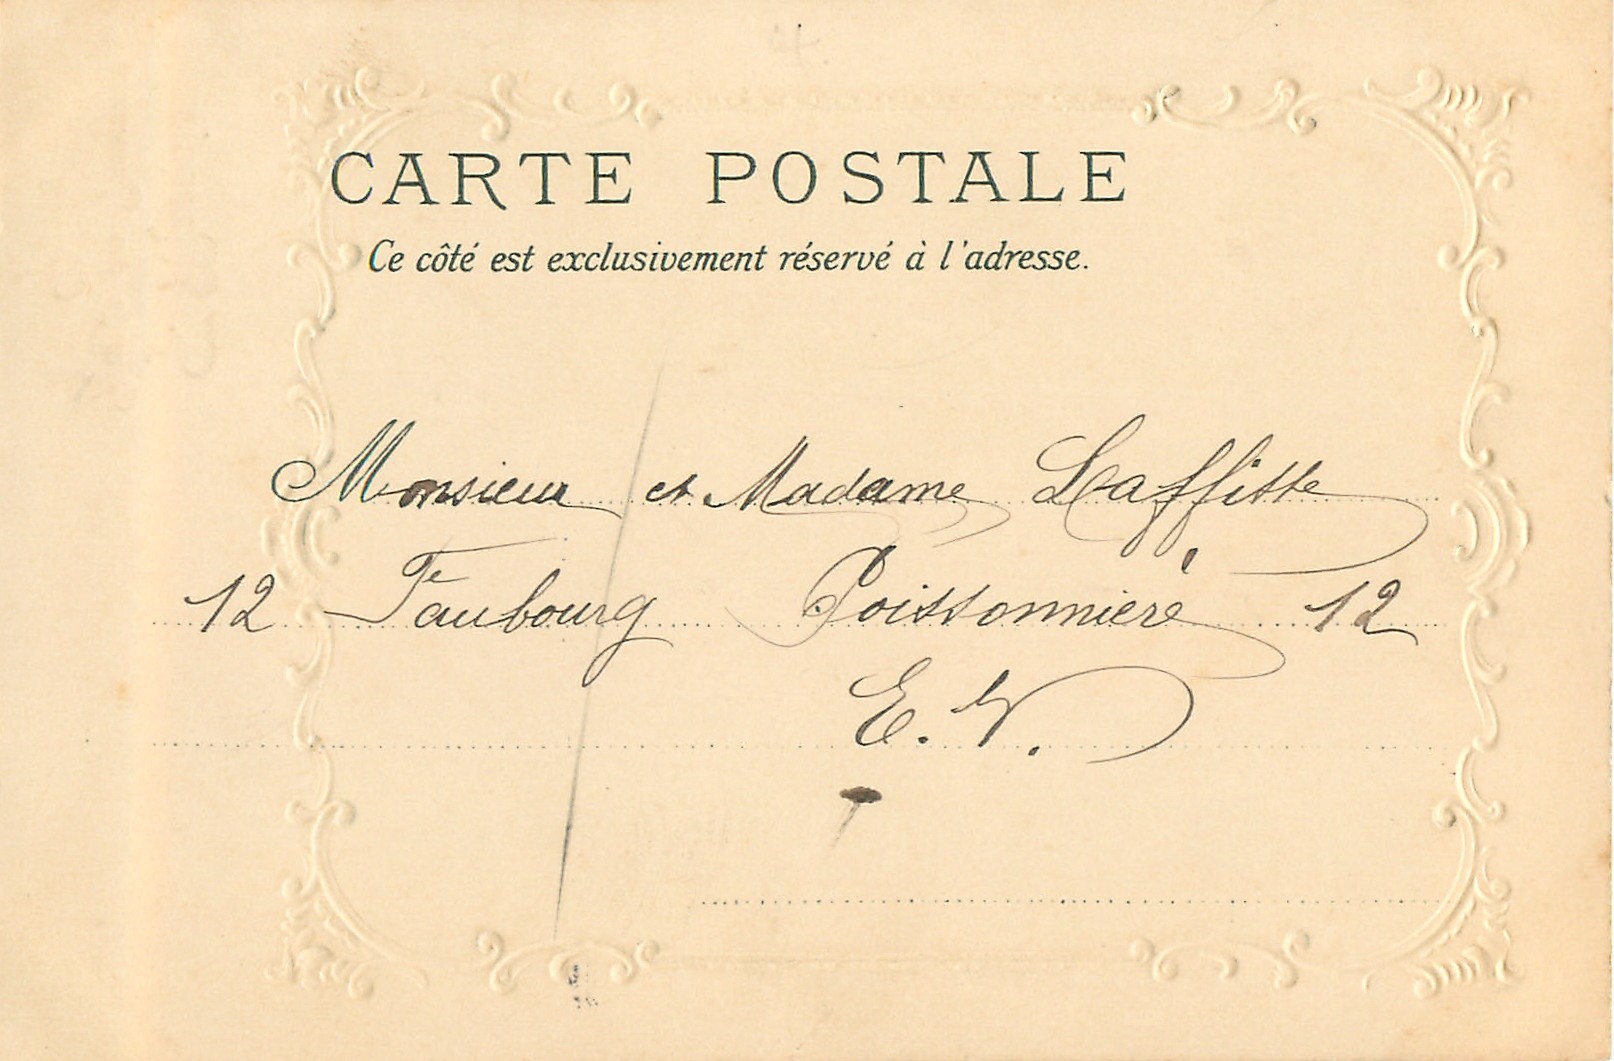 CARTE POSTALE
Ce côté est exclusivement réservé à l'adresse.
Monsieur et Madame Laffitte
12 Faubourg Poissonnière 12
E. V.